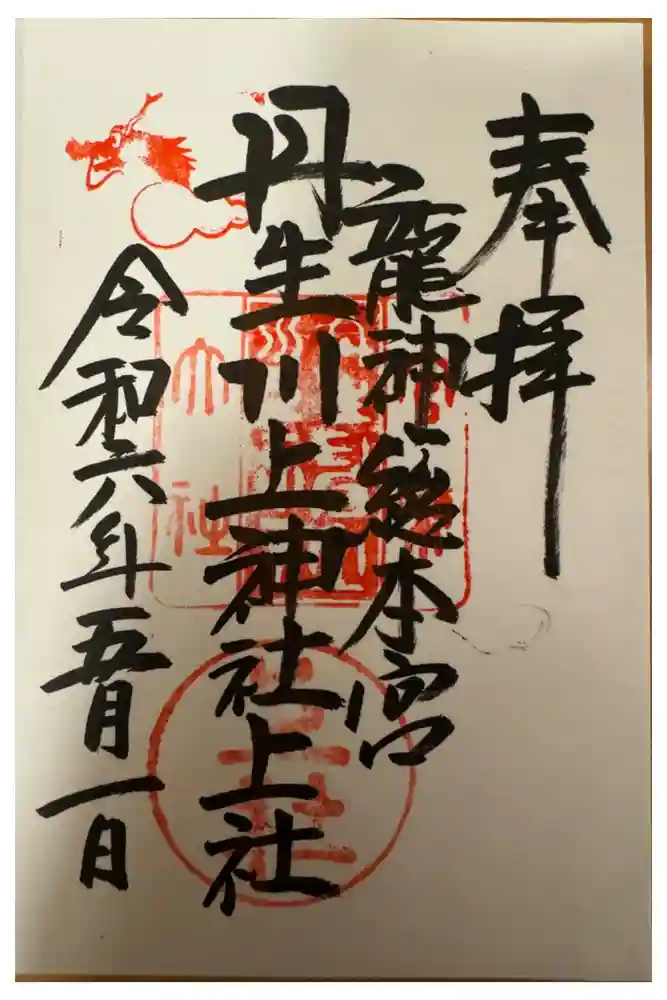 奉拝
龍神総本宮
丹生川上神社上社
令和六年五月一日
大社
上社